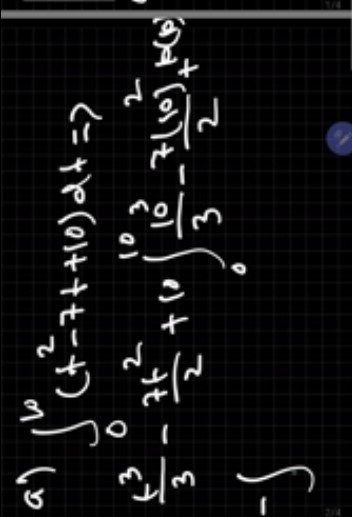 1/4
a) ∫₀¹⁰ (t² - 7t + 10) dt =>
t³/3 - 7t²/2 + 10 ∫₀¹⁰ 10³/3 - 7(10)²/2 +
- ∫
2/4